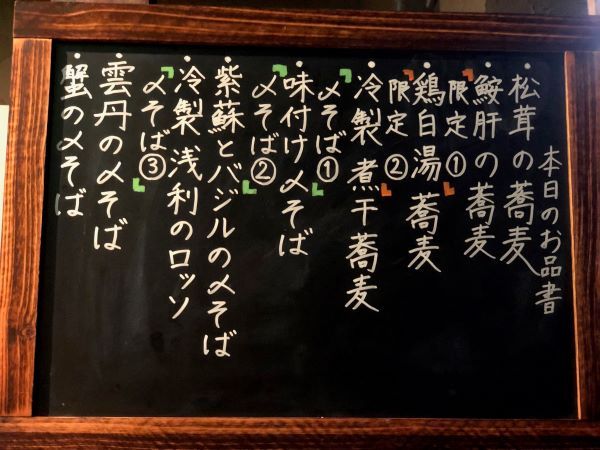 本日のお品書
・松茸の蕎麦
限定①
・鮟肝の蕎麦
限定②
・鶏白湯蕎麦
・冷製煮干蕎麦
〆そば①
・味付け〆そば
〆そば②
・紫蘇とバジルの〆そば
〆そば③
・冷製浅利のロッソ
・雲丹の〆そば
・蟹の〆そば